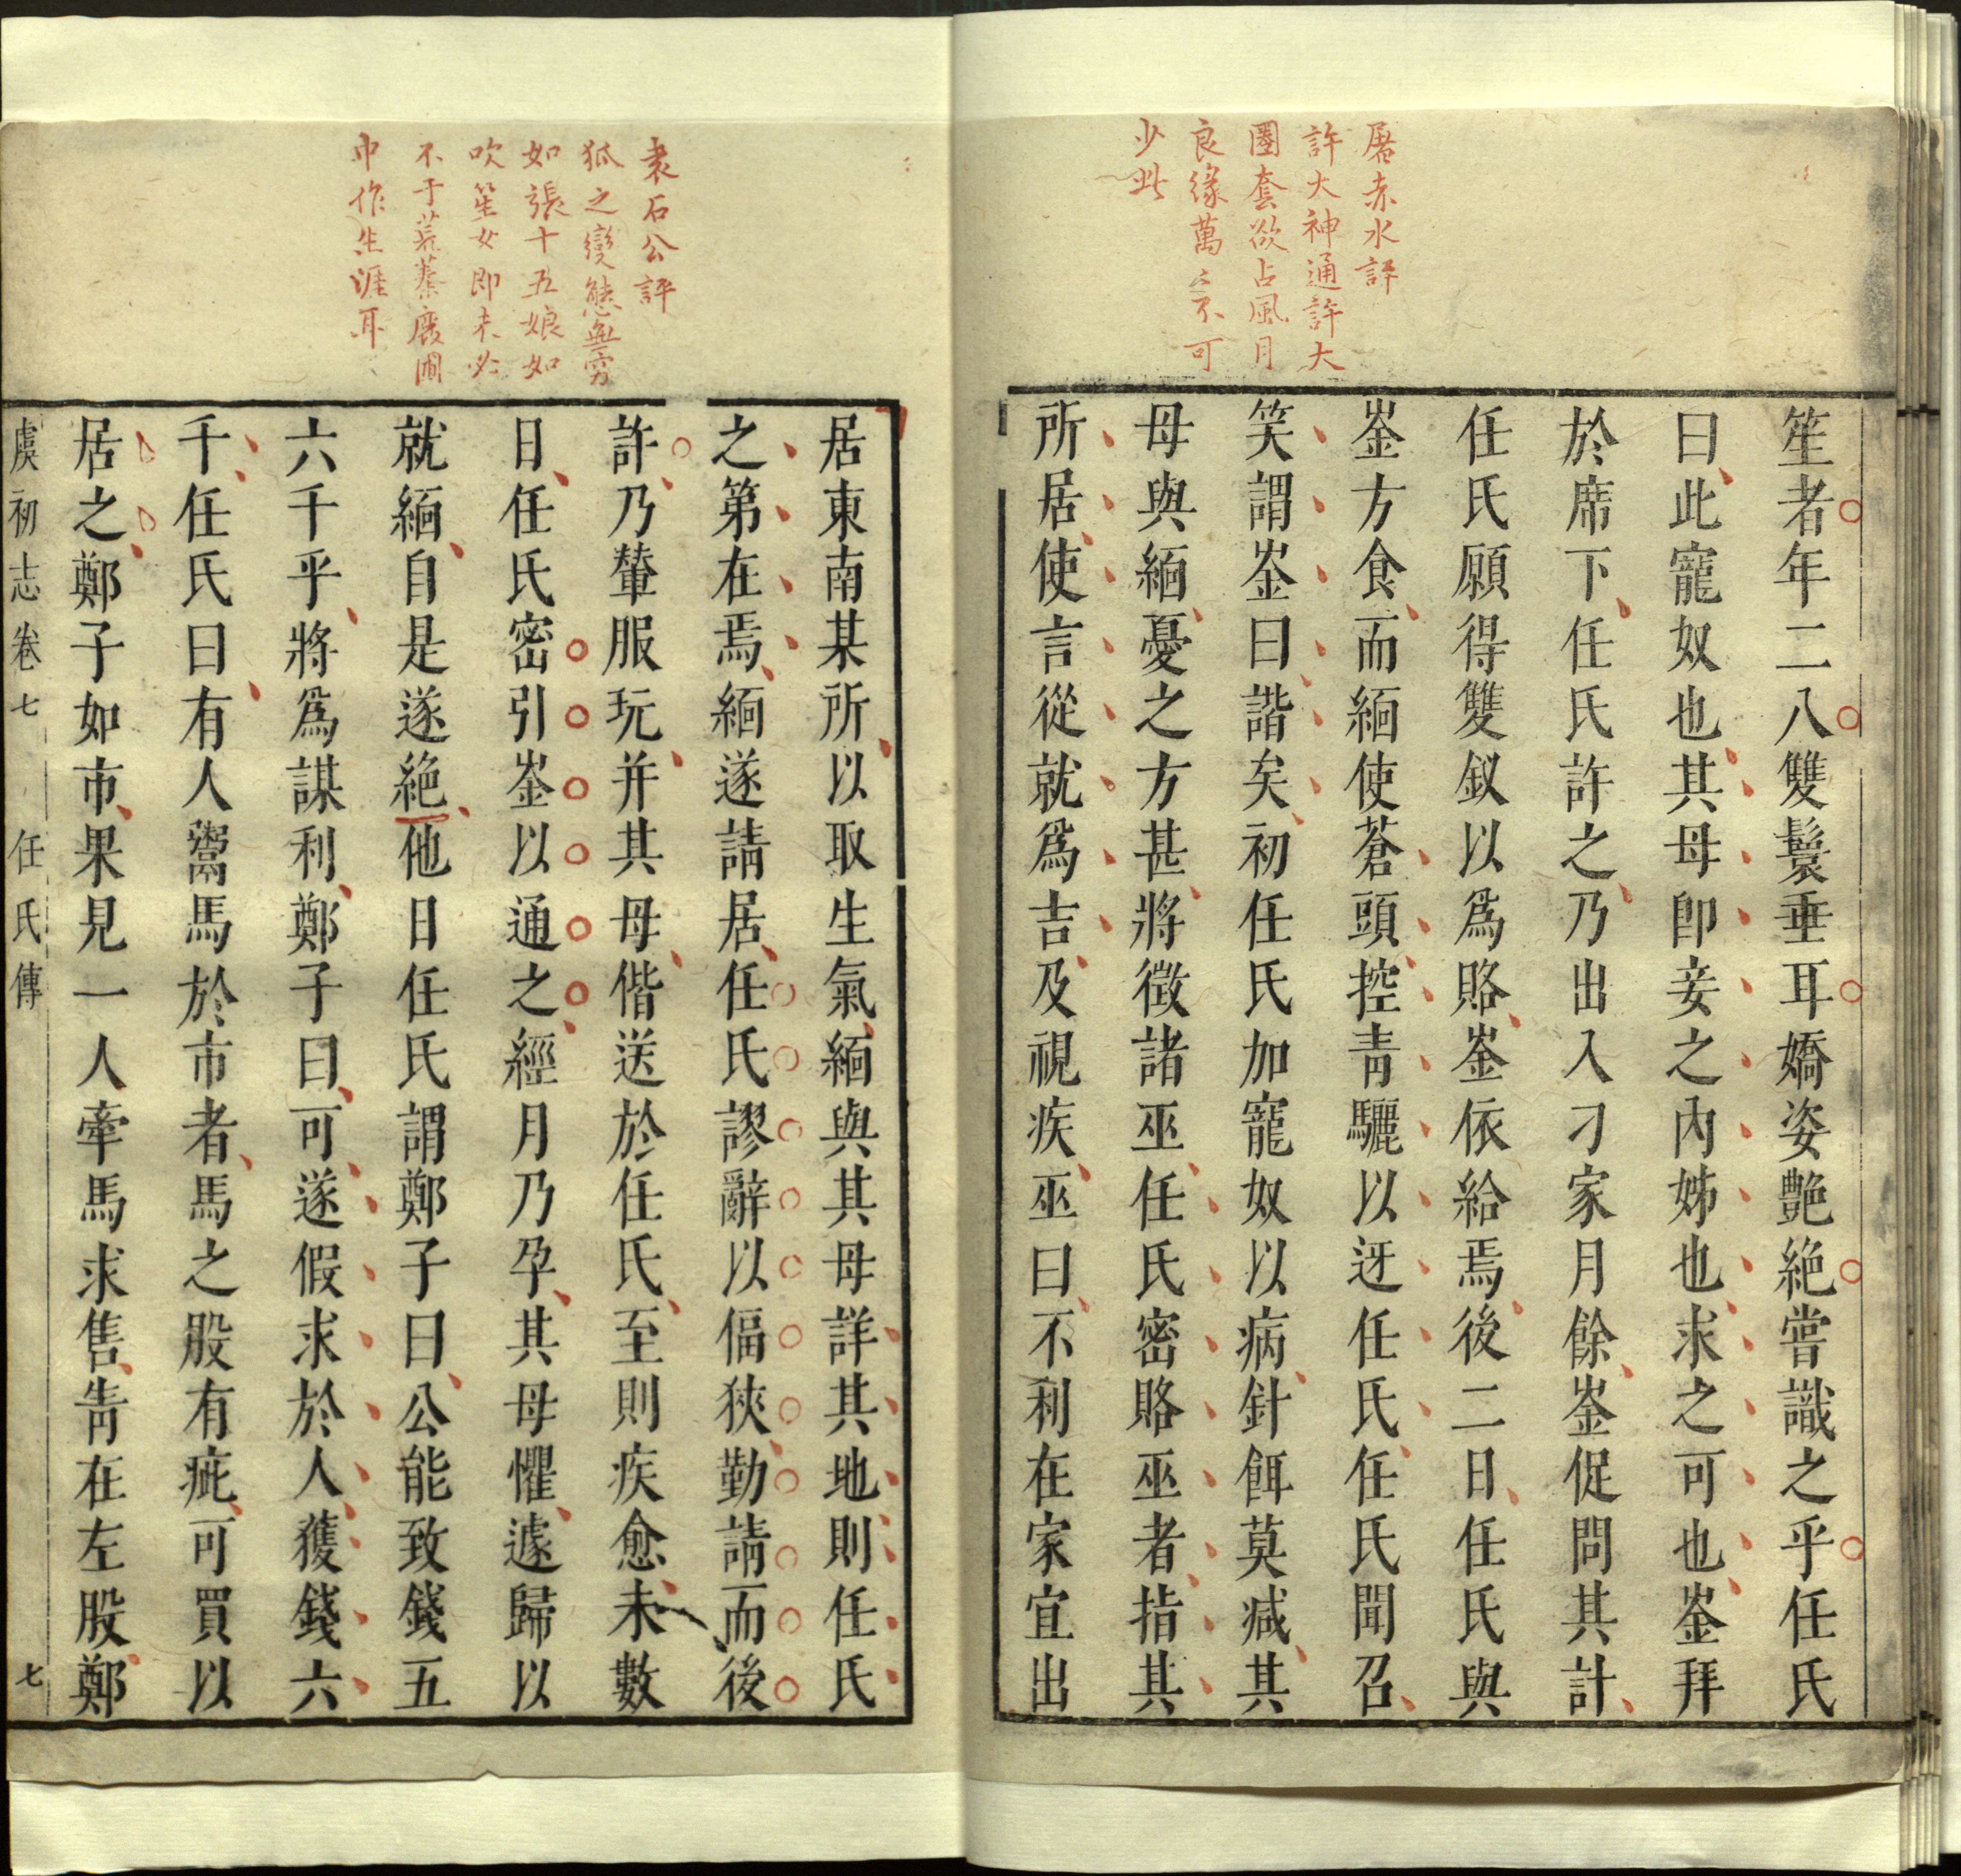 屠赤水評
許大神通許大
圏套欲占風月
良緣萬〻不可
少此
笙者年二八雙鬟垂耳嬌姿艷絕嘗識之乎任氏
曰此寵奴也其母卽妾之內姊也求之可也崟拜
於席下任氏許之乃出入刁家月餘崟促問其計
任氏願得雙釵以爲賂崟依給焉後二日任氏與
崟方食而緬使蒼頭控靑驪以迓任氏任氏聞召
笑謂崟曰諧矣初任氏加寵奴以病針餌莫減其
母與緬憂之方甚將徵諸巫任氏密賂巫者指其
所居使言從就爲吉及視疾巫曰不利在家宜出
袁石公評
狐之變態無窮
如張十五娘如
吹笙女即未必
不于荒蓁廢圃
中作生涯耳
居東南某所以取生氣緬與其母詳其地則任氏
之第在焉緬遂請居任氏謬辭以偪狹勤請而後
許乃輦服玩并其母偕送於任氏至則疾愈未數
日任氏密引崟以通之經月乃孕其母懼遽歸以
就緬自是遂絕他日任氏謂鄭子曰公能致錢五
六千乎將爲謀利鄭子曰可遂假求於人獲錢六
千任氏曰有人鬻馬於市者馬之股有疵可買以
居之鄭子如市果見一人牽馬求售靑在左股鄭
虞初志卷七 任氏傳 七